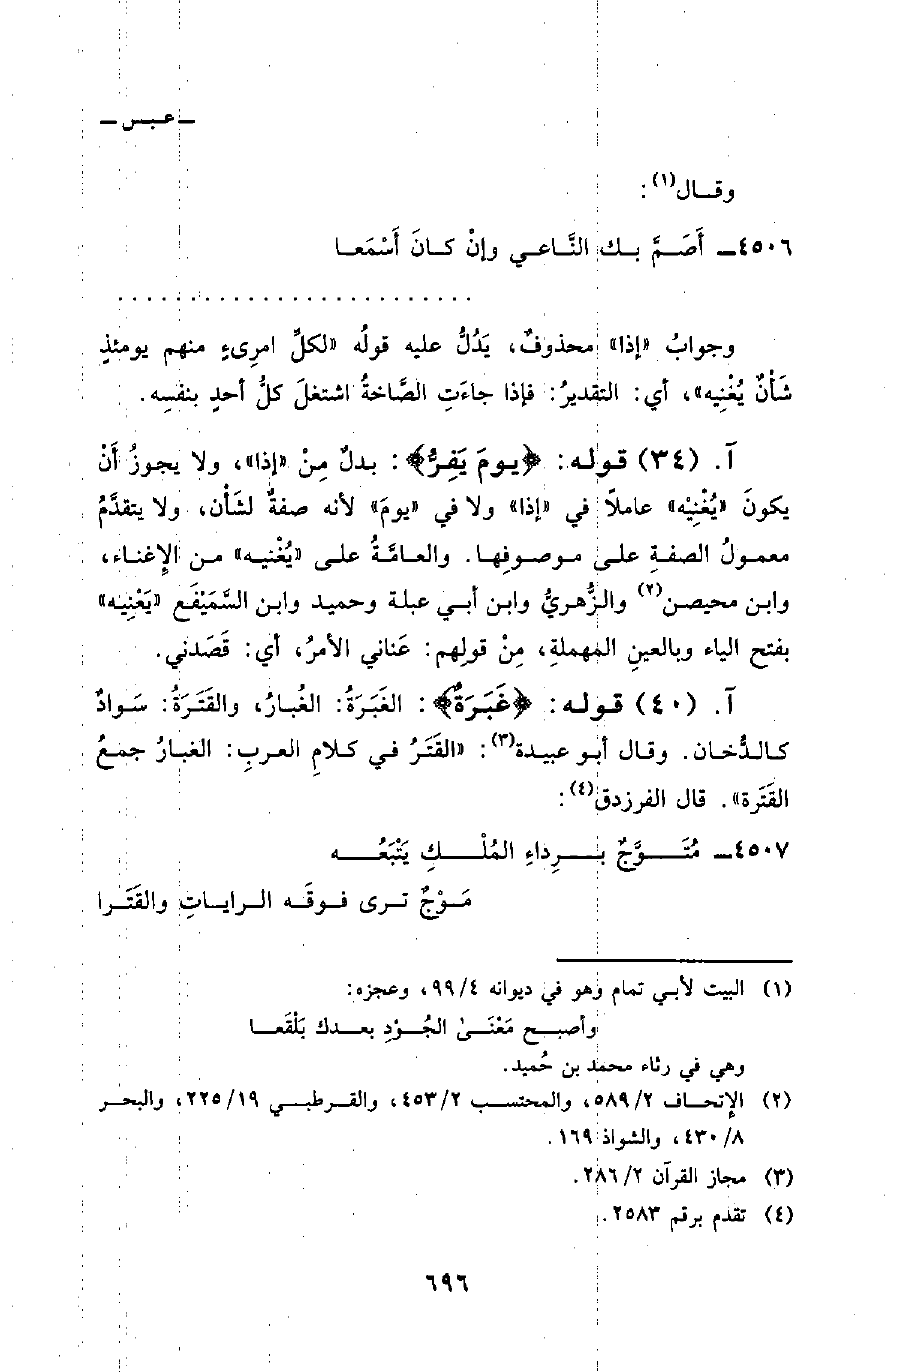 ـ عبس ـ
وقال(١):
٤٥٠٦ـ أَصَمَّ بك النَّاعي وإنْ كانَ أَسْمَعا
. . . . . . . . . . . . . . . . . . . . . . . . .
وجوابُ «إذا» محذوفٌ، يَدُلُّ عليه قولُه «لكلِّ امرِىءٍ منهم يومئذٍ
شَأْنٌ يُغْنِيه»، أي: التقديرُ: فإذا جاءَتِ الصَّاخةُ اشتغلَ كلُّ أحدٍ بنفسِه.
آ. (٣٤) قوله: ﴿يومَ يَفِرُّ﴾: بدلٌ مِنْ «إذا»، ولا يجوزُ أَنْ
يكونَ «يُغْنِيْه» عاملاً في «إذا» ولا في «يومَ» لأنه صفةٌ لشَأْن، ولا يتقدَّمُ
معمولُ الصفةِ على موصوفِها. والعامَّةُ على «يُغْنيه» من الإِغناء،
وابن محيصن(٢) والزُّهريُّ وابن أبي عبلة وحميد وابن السَّمَيْفَع «يَعْنِيْه»
بفتح الياء وبالعينِ المهملةِ، مِنْ قولِهم: عَناني الأمرُ، أي: قَصَدني.
آ. (٤٠) قوله: ﴿غَبَرَةٌ﴾: الغَبَرَةُ: الغُبارُ، والقَتَرَةُ: سَوادٌ
كالدُّخان. وقال أبو عبيدة(٣): «القَتَرُ في كلامِ العربِ: الغبارُ جمعُ
القَتَرة». قال الفرزدق(٤):
٤٥٠٧ـ مُتَوَّجٌ برِداءِ المُلْكِ يَتْبَعُه
مَوْجٌ ترى فوقَه الراياتِ والقَتَرا
(١) البيت لأبي تمام وهو في ديوانه ٩٩/٤، وعجزه:
وأصبح مَغْنَىٰ الجُوْدِ بعدك بَلْقَعا
وهي في رثاء محمد بن حُميد.
(٢) الإتحاف ٥٨٩/٢، والمحتسب ٤٥٣/٢، والقرطبي ٢٢٥/١٩، والبحر
٤٣٠/٨، والشواذ ١٦٩.
(٣) مجاز القرآن ٢٨٦/٢.
(٤) تقدم برقم ٢٥٨٣.
٦٩٦